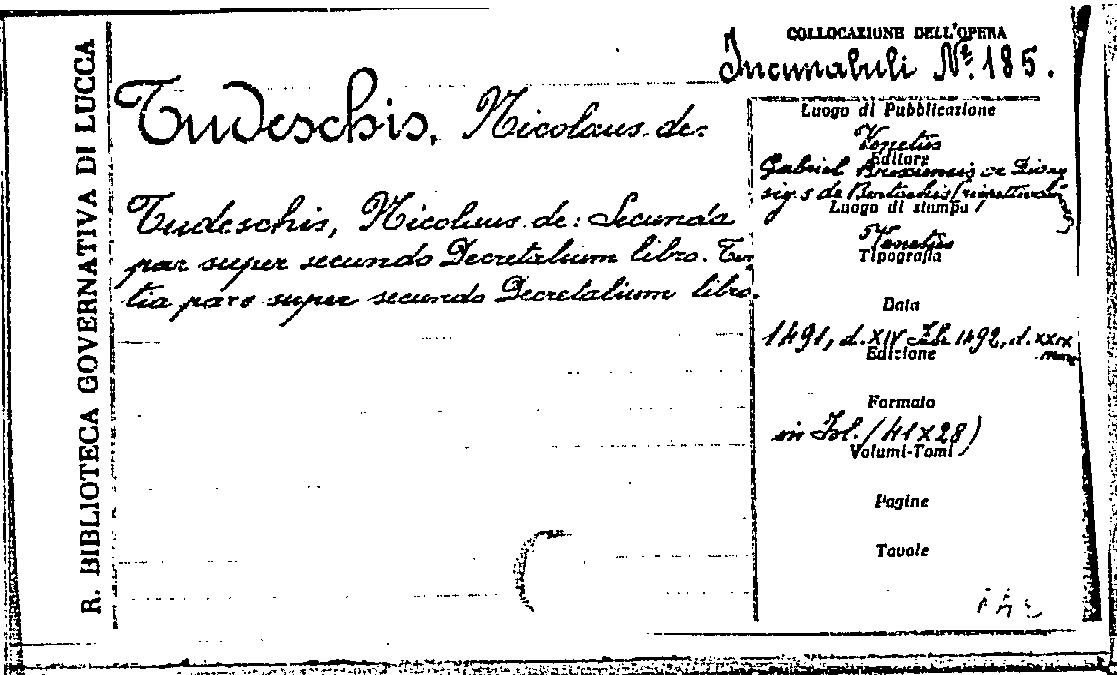 R. BIBLIOTECA GOVERNATIVA DI LUCCA
COLLOCAZIONE DELL'OPERA
Incunabuli Nº 185.
Tudeschis, Nicolaus de:
Tudeschis, Nicolaus de: Secunda
par super secundo Decretalium libro. Ter
tia pars super secundo Decretalium libro.
Luogo di Pubblicazione
Venetiis
Editore
Gabriel Brixiensis
Luogo di stampa
Venetiis
Tipografia
Data
1491, d. XIV Feb. 1492, d. XXIX
Edizione
Formato
in Fol. (41x28)
Volumi-Tomi
Pagine
Tavole